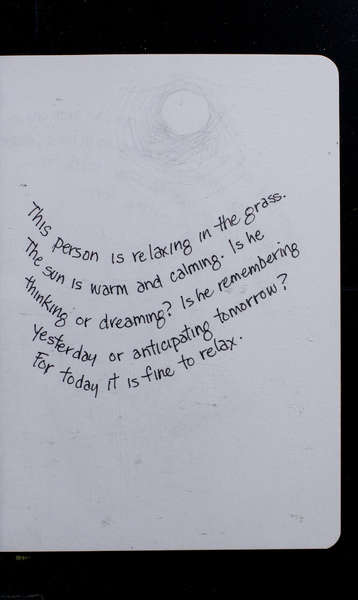 This person is relaxing in the grass.
The sun is warm and calming. Is he
thinking or dreaming? Is he remembering
yesterday or anticipating tomorrow?
For today it is fine to relax.